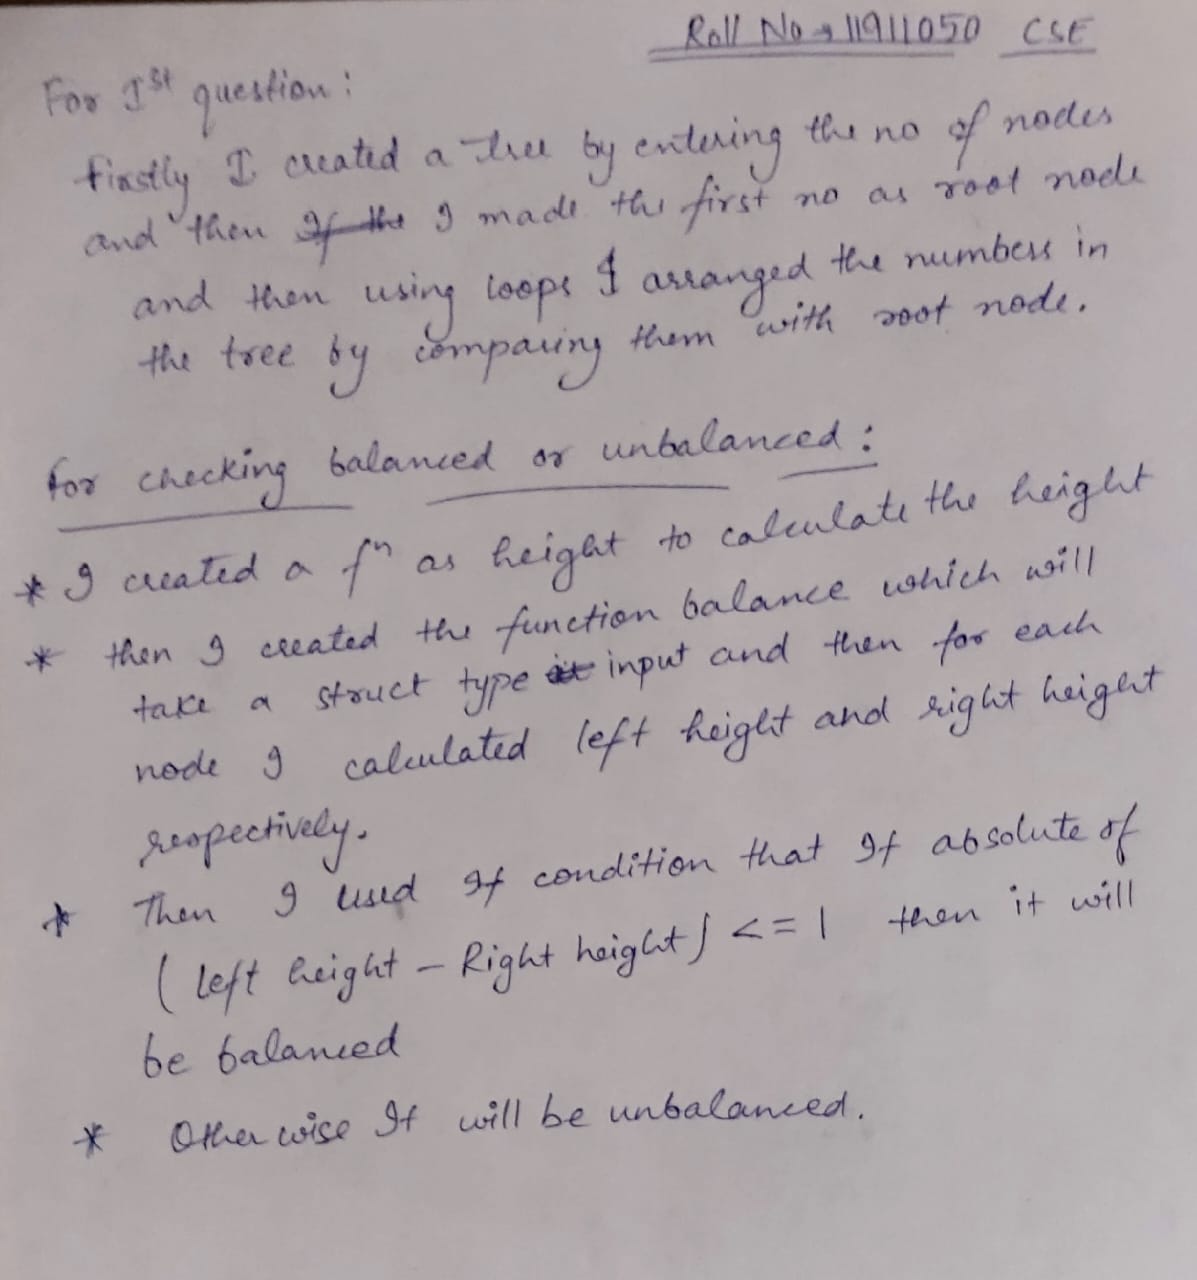 Roll No → 11911050 CSE
For Ist question :
firstly I created a tree by entering the no of nodes
and then If the I made the first no as root node
and then using loops I arranged the numbers in
the tree by comparing them with root node.
for checking balanced or unbalanced :
* I created a fn as height to calculate the height
* then I created the function balance which will
take a struct type input and then for each
node I calculated left height and right height
respectively.
* Then I used If condition that If absolute of
( left height - Right height ) <= 1 then it will
be balanced
* Otherwise It will be unbalanced.